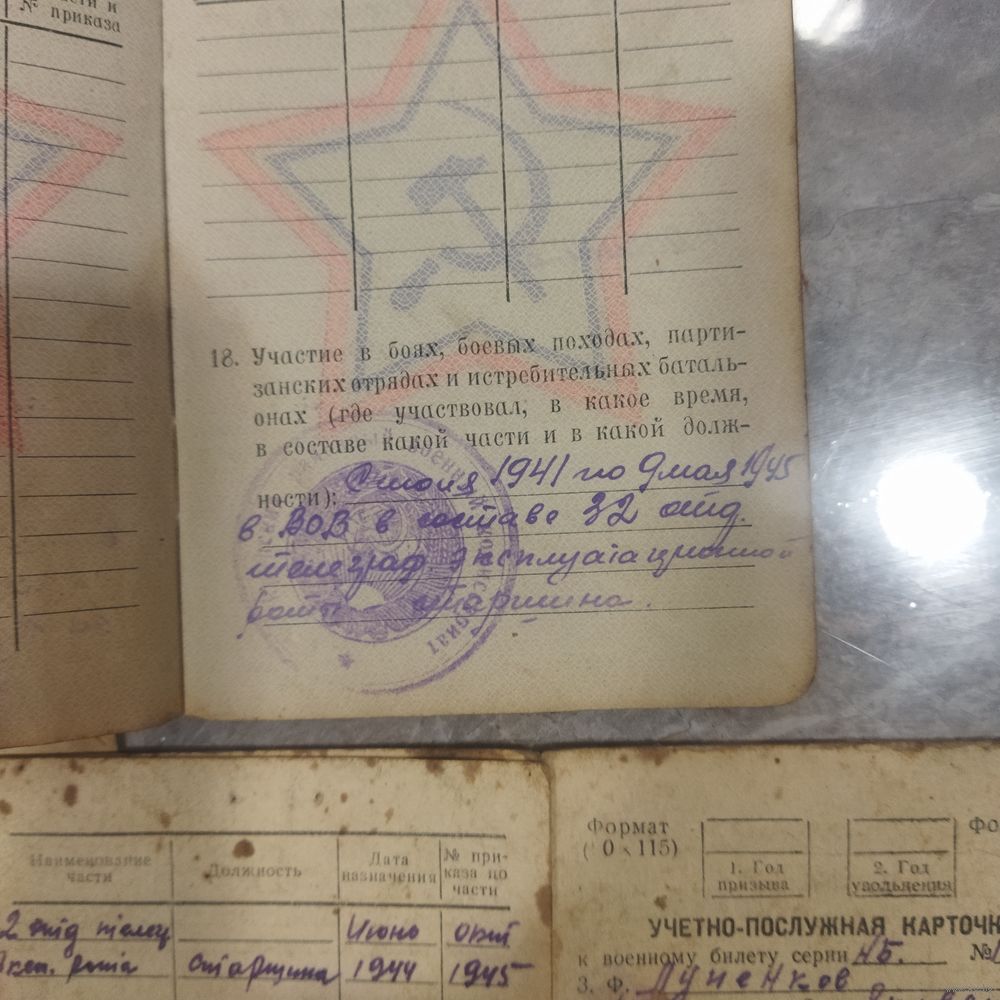 № приказа
18. Участие в боях, боевых походах, парти-
занских отрядах и истребительных баталь-
онах (где участвовал, в какое время,
в составе какой части и в какой долж-
ности): С июня 1941 по 9 мая 1945
в ВОВ в составе 32 отд.
телеграф эксплуатационной
роты старшина.
Наименование части
Должность
Дата назначения
№ при-
каза по
части
2 отд телег
Июнь
окт
экс. рота
старшина
1944
1945
Формат
(70×115)
1. Год
призыва
2. Год
увольнения
УЧЕТНО-ПОСЛУЖНАЯ КАРТОЧК
к военному билету серии НБ. №
3. Ф. Лупенков